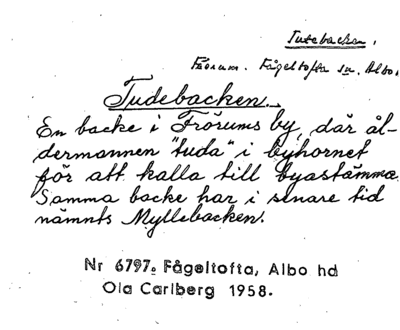 Tudebacken.
Frörum. Fågeltofta sn. Albo.
Tudebacken.
En backe i Frörums by, där ål-
dermannen "tuda" i byhornet
för att kalla till byastämma.
Samma backe har i senare tid
nämnts Myllebacken.
Nr 6797. Fågeltofta, Albo hd
Ola Carlberg 1958.